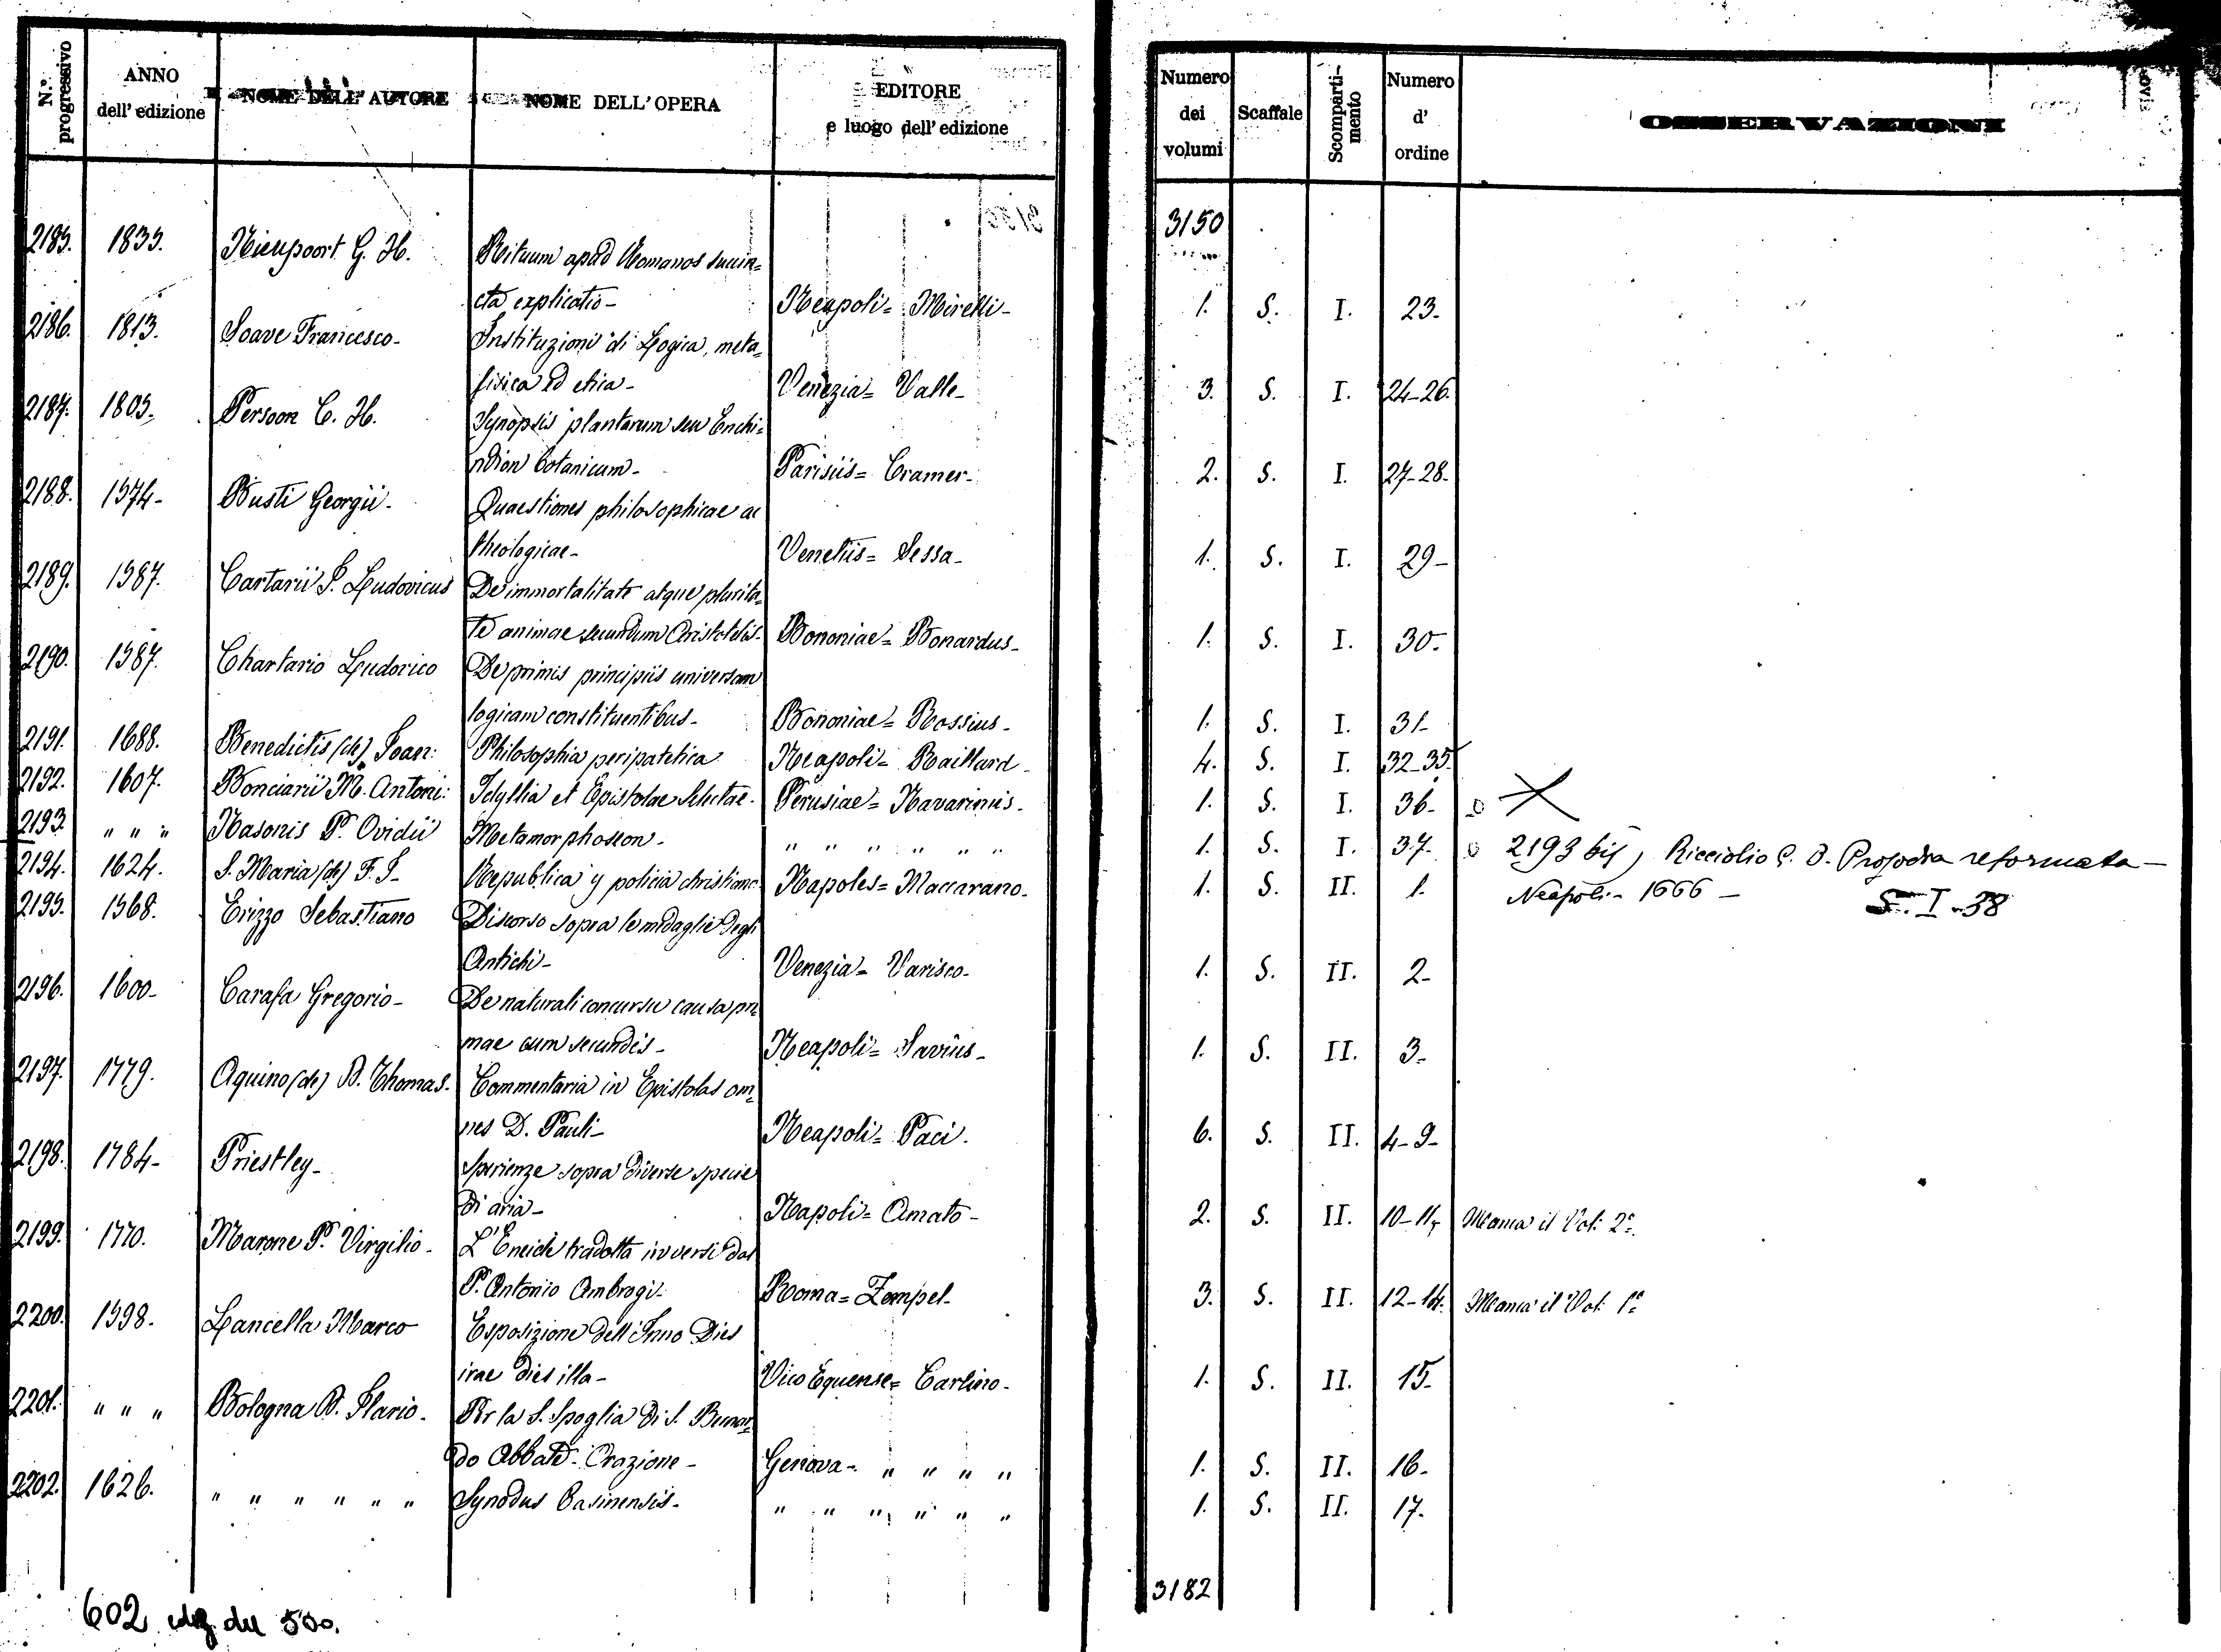 N.º progressivo | ANNO dell' edizione | NOME DELL' AUTORE | NOME DELL' OPERA | EDITORE e luogo dell' edizione | Numero dei volumi | Scaffale | Scomparti-mento | Numero d' ordine | OSSERVAZIONI
3150
2185. 1835. Nieupoort G. H. Rituum apud Romanos succin=
cta explicatio- Neapoli= Mirelli- 1. S. I. 23-
2186. 1813. Soave Francesco- Instituzioni di Logica, meta=
fisica ed etica- Venezia= Valle- 3. S. I. 24-26.
2187. 1805. Persoon C. H. Synopsis plantarum seu Enchi=
ridion botanicum- Parisiis= Cramer- 2. S. I. 27-28-
2188. 1574- Busti Georgii- Quaestiones philosophicae ac
theologicae- Venetiis= Sessa- 1. S. I. 29-
2189. 1587. Cartarii S. Ludovicus De immortalitate atque plurita=
te animae secundum Aristotelis- Bononiae= Bonardus- 1. S. I. 30-
2190. 1587. Chartario Ludovico De primis principiis universam
logicam constituentibus- Bononiae= Rossius- 1. S. I. 31-
2191. 1688. Benedictis (de) Joan: Philosophia peripatetica Neapoli= Raillard- 4. S. I. 32-35-
2192. 1607. Bonciarii M. Antoni: Idyllia et Epistolae Selectae- Perusiae= Navarinis- 1. S. I. 36-
2193. " " " Nasonis P. Ovidii Metamorphoseon- " " " " " " 1. S. I. 37- 2193 bis, Ricciolio G. B. Prosodia reformata-
2194. 1624. S. Maria (de) F. J- Republica y policia christiana- Napoles= Maccarano- 1. S. II. 1. Neapoli- 1666-
S. I-38
2195. 1568. Erizzo Sebastiano Discorso sopra le medaglie degli
Antichi- Venezia= Varisco- 1. S. II. 2-
2196. 1600- Carafa Gregorio- De naturali concursu causa pri=
mae cum secundis- Neapoli= Savius- 1. S. II. 3-
2197. 1779. Aquino (de) D. Thomas. Commentaria in Epistolas om=
nes D. Pauli- Neapoli= Paci. 6. S. II. 4-9-
2198. 1784- Priestley- Sperienze sopra diverse specie
di aria- Napoli= Amato- 2. S. II. 10-11, Manca il Vol: 2º.
2199. 1770. Marone P. Virgilio- L'Eneide tradotta in versi dal
P. Antonio Ambrogi- Roma= Zempel- 3. S. II. 12-14. Manca il Vol: 1º
2200. 1598. Lancella Marco Esposizione dell'Inno Dies
irae dies illa- Vico Equense= Carlino- 1. S. II. 15-
2201. " " " Bologna D. Ilario- Per la S. Spoglia di S. Bernar=
do Abbate- Orazione- Genova- " " " " 1. S. II. 16-
2202. 1626. " " " " " " Synodus Casinensis- " " " " " " 1. S. II. 17-
3182
602 ediz del 500.